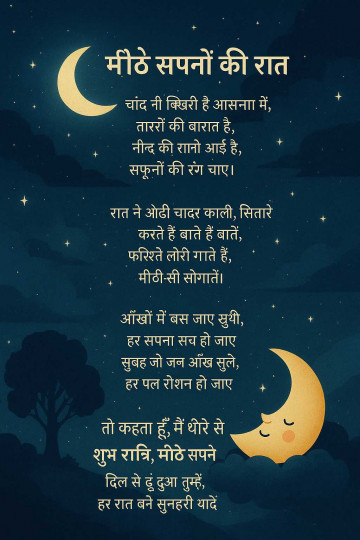 मीठे सपनों की रात
चांद नी बिखरी है आसनाा में,
ताररों की बारात है,
नीन्द की राानो आई है,
सफूनों की रंग चाए।
रात ने ओढी चादर काली, सितारे
करते हैं बाते हैं बातें,
फरिश्ते लोरी गाते हैं,
मीठी-सी सोगातें।
आँखों में बस जाए सुथी,
हर सपना सच हो जाए
सुबह जो जन आँख सुले,
हर पल रोशन हो जाए
तो कहता हूँ, मैं धीरे से
शुभ रात्रि, मीठे सपने
दिल से ढूं दुआ तुम्हें,
हर रात बने सुनहरी यादें